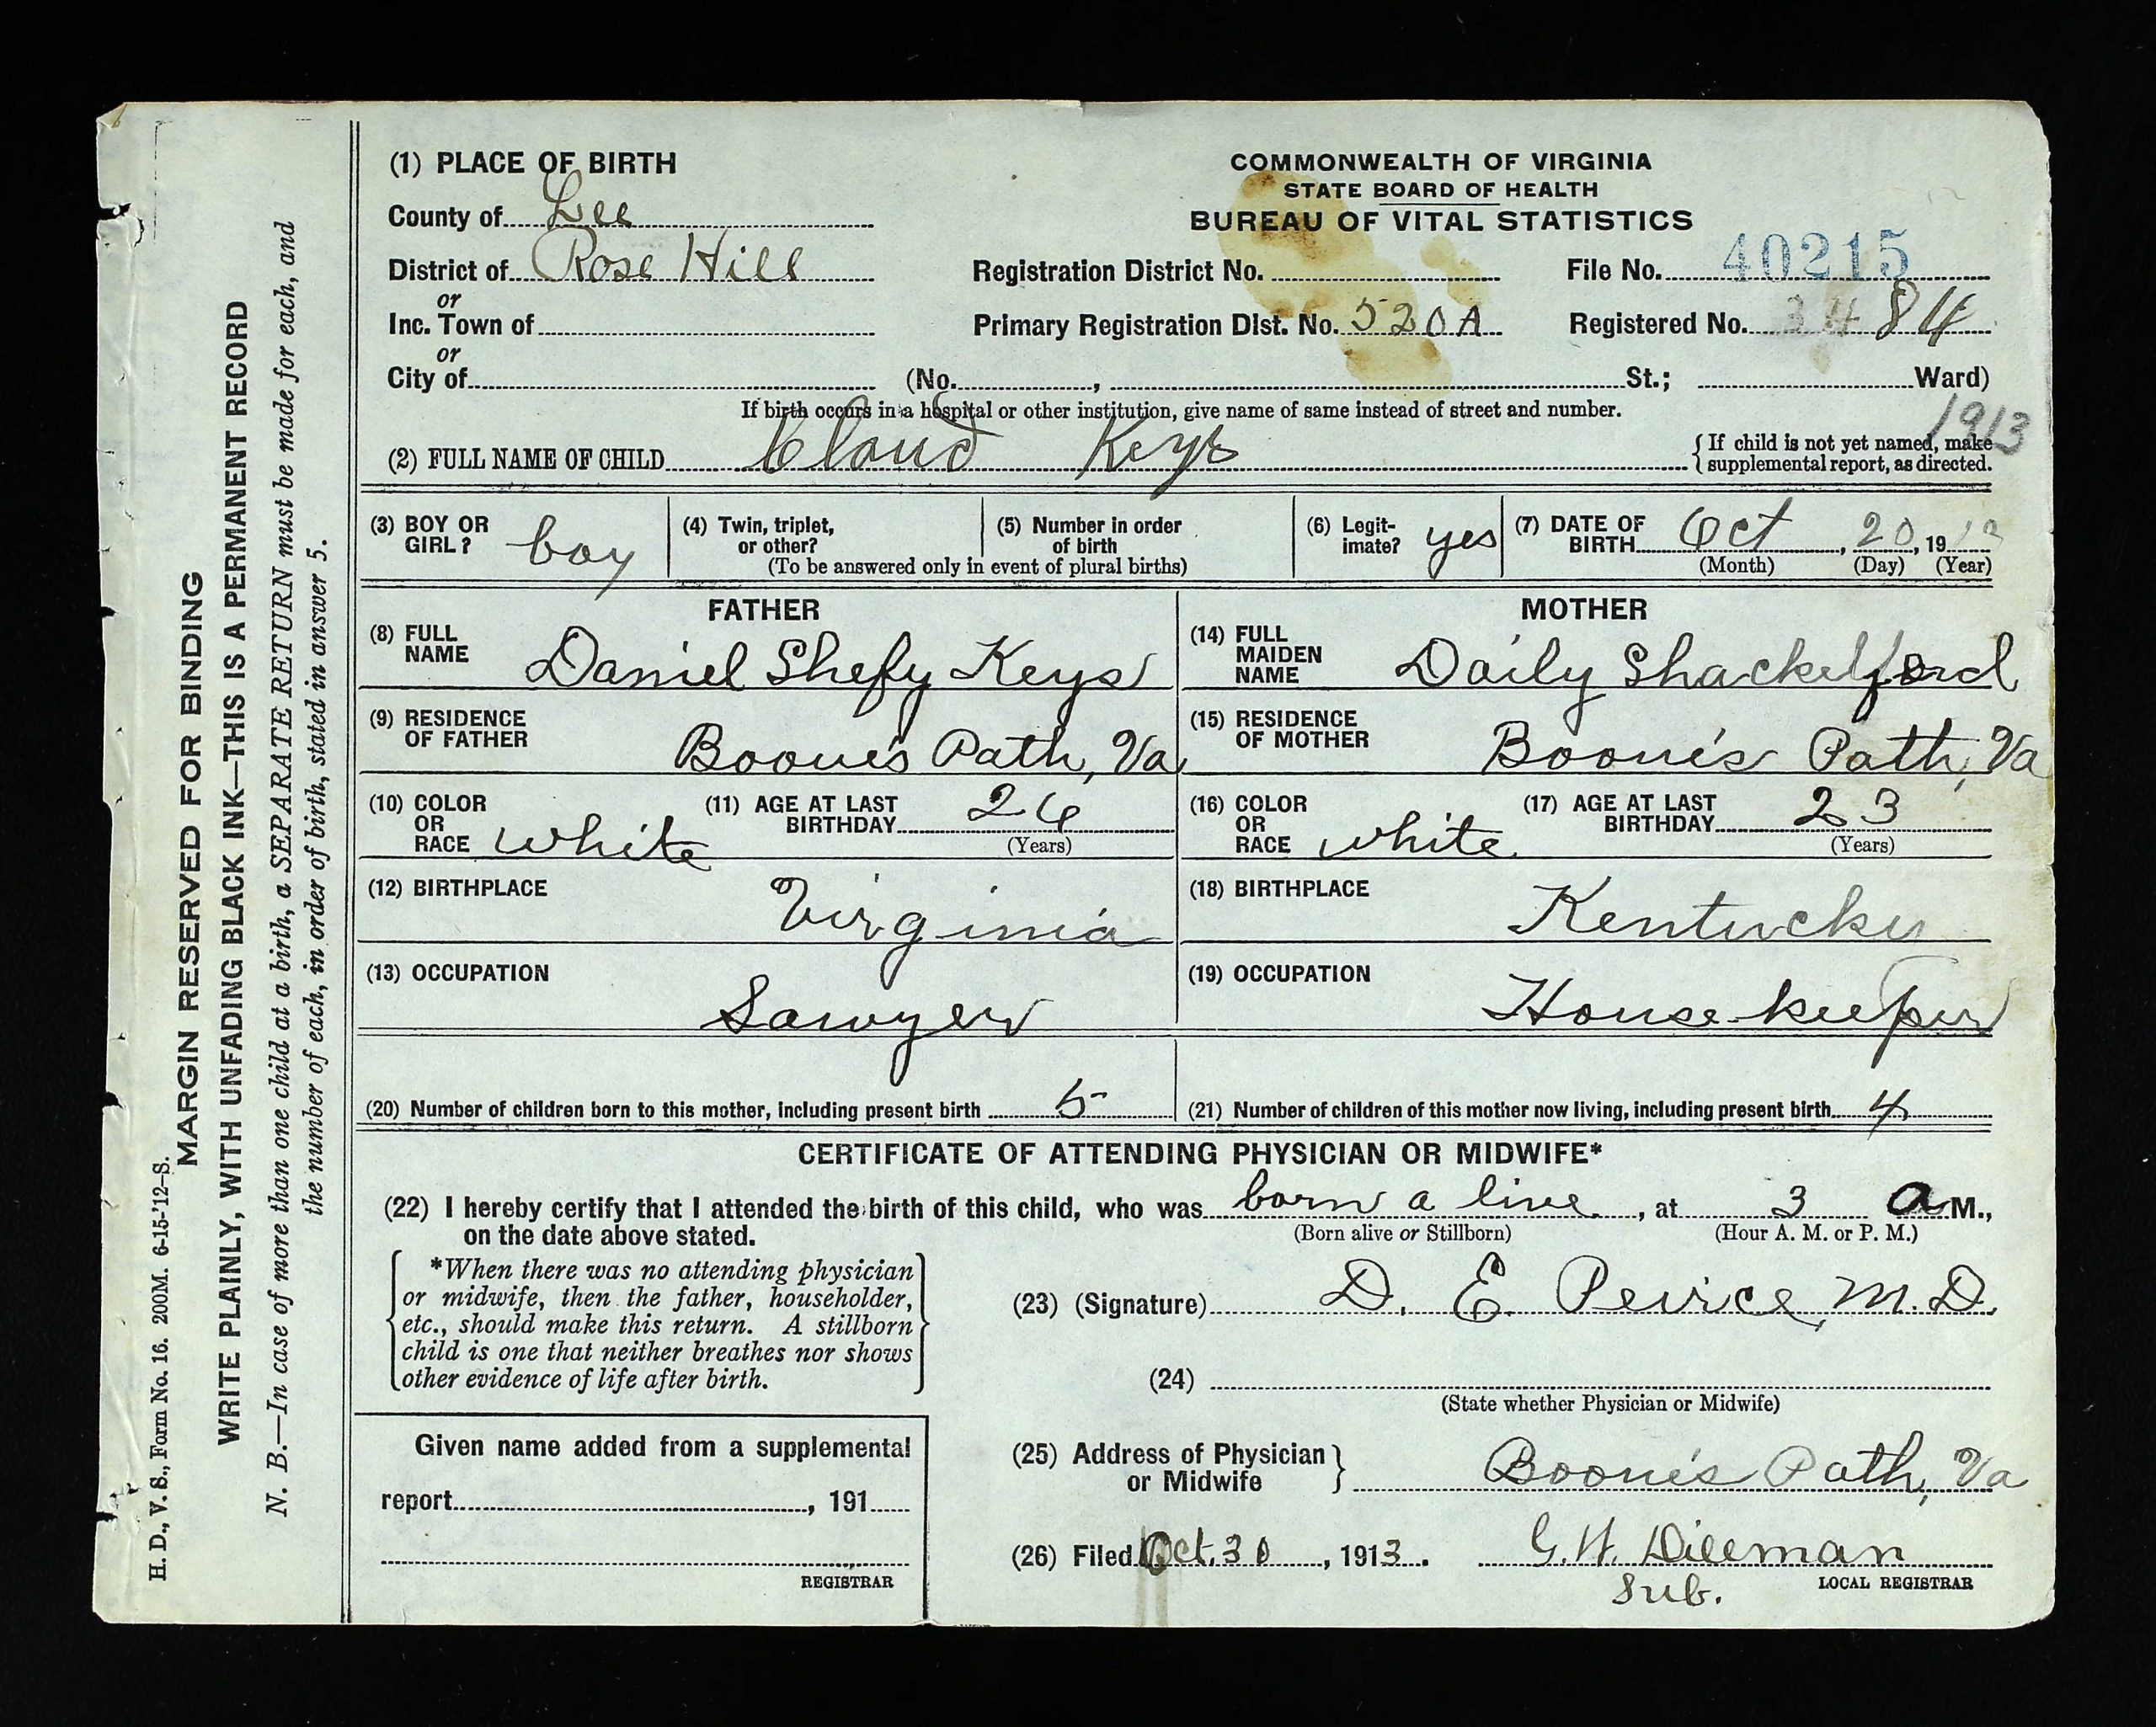 (1) PLACE OF BIRTH
County of Lee
District of Rose Hill
or
Inc. Town of
or
City of (No. , St.; Ward)
COMMONWEALTH OF VIRGINIA
STATE BOARD OF HEALTH
BUREAU OF VITAL STATISTICS
Registration District No. File No. 40215
Primary Registration Dist. No. 520A Registered No. 84
If birth occurs in a hospital or other institution, give name of same instead of street and number.
1913
(2) FULL NAME OF CHILD Cloud Keys { If child is not yet named, make
supplemental report, as directed.
(3) BOY OR GIRL? boy
(4) Twin, triplet, or other?
(5) Number in order of birth
(To be answered only in event of plural births)
(6) Legitimate? yes
(7) DATE OF BIRTH Oct, 20, 19
(Month) (Day) (Year)
FATHER
(8) FULL NAME Daniel Shefy Keys
(9) RESIDENCE OF FATHER Boone's Path, Va
(10) COLOR OR RACE white
(11) AGE AT LAST BIRTHDAY 26
(Years)
(12) BIRTHPLACE Virginia
(13) OCCUPATION Sawyer
MOTHER
(14) FULL MAIDEN NAME Daily Shackelford
(15) RESIDENCE OF MOTHER Boone's Path, Va
(16) COLOR OR RACE white
(17) AGE AT LAST BIRTHDAY 23
(Years)
(18) BIRTHPLACE Kentucky
(19) OCCUPATION House-keeper
(20) Number of children born to this mother, including present birth 5
(21) Number of children of this mother now living, including present birth 4
CERTIFICATE OF ATTENDING PHYSICIAN OR MIDWIFE*
(22) I hereby certify that I attended the birth of this child, who was born a live, at 3 a M.,
on the date above stated. (Born alive or Stillborn) (Hour A. M. or P. M.)
*When there was no attending physician
or midwife, then the father, householder,
etc., should make this return. A stillborn
child is one that neither breathes nor shows
other evidence of life after birth.
(23) (Signature) D. E. Peirce, M.D.
(24)
(State whether Physician or Midwife)
Given name added from a supplemental
report , 191
REGISTRAR
(25) Address of Physician
or Midwife } Boone's Path, Va
(26) Filed Oct. 30, 1913. G. W. Dillman
Sub. LOCAL REGISTRAR
H. D., V. S., Form No. 16. 200M. 6-15-'12-S.
MARGIN RESERVED FOR BINDING
WRITE PLAINLY, WITH UNFADING BLACK INK—THIS IS A PERMANENT RECORD
N. B.—In case of more than one child at a birth, a SEPARATE RETURN must be made for each, and
the number of each, in order of birth, stated in answer 5.